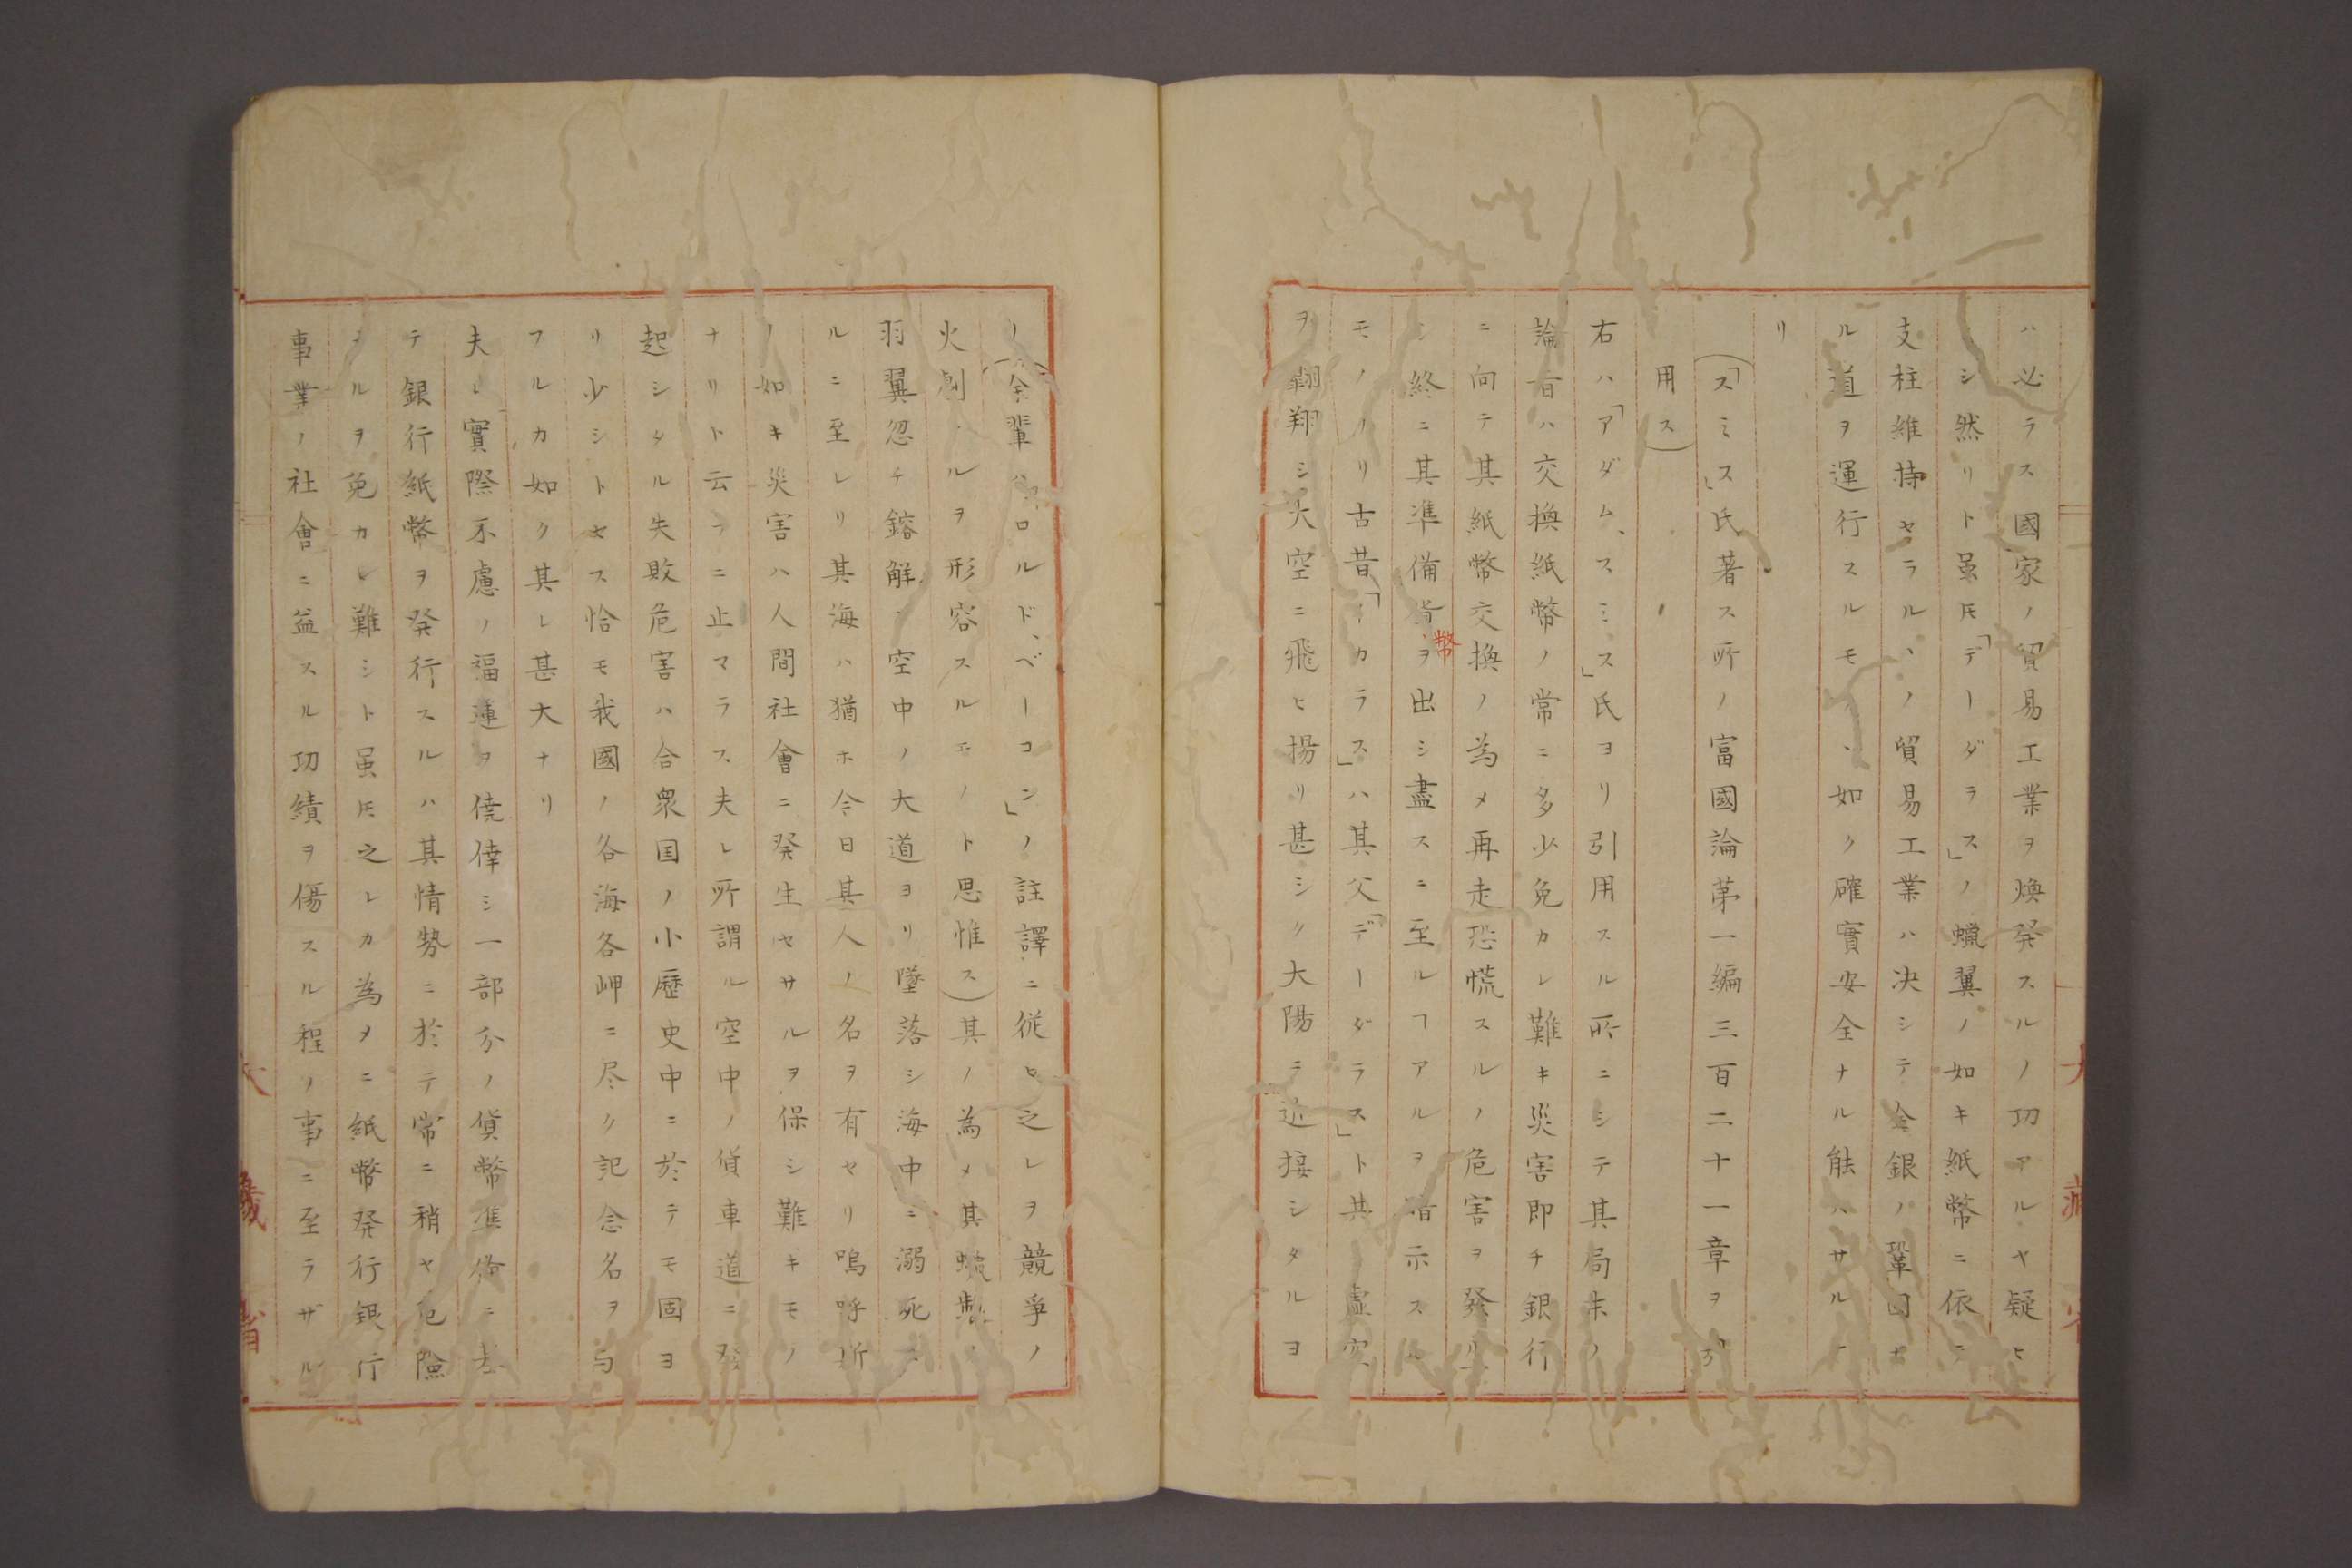 ハ必ラス國家ノ貿易工業ヲ煥発スルノ功アルヤ疑ヒ
シ然リト虽𪜈「デーダラス」ノ蠟翼ノ如キ紙幣ニ依テ
支柱維持セラルヽノ貿易工業ハ决シテ金銀ノ鞏固ナ
ル道ヲ運行スルモノヽ如ク確實安全ナル能ハサル
リ
(「スミス」氏著ス所ノ富國論第一編三百二十一章ヲ引
用ス)
右ハ「アダム、スミス」氏ヨリ引用スル所ニシテ其局末ノ
論旨ハ交換紙幣ノ常ニ多少免カレ難キ災害即チ銀行
ニ向テ其紙幣交換ノ為メ再走恐慌スルノ危害ヲ發
シ終ニ其準備ヲ出シ盡スニ至ルヿアルヲ指示スル
幣
モノノリ古昔「イカラス」ハ其父「デーダラス」ト共ニ虚空
ヲ翺翔シ大空ニ飛ヒ揚リ甚シク大陽ニ近接シタルヨ
ノ(余輩ハ「ハロルド、ベーコン」ノ註譯ニ従ヒ之レヲ競爭ノ
火劇ナルヲ形容スルモノト思惟ス)其ノ為メ其蠟製ノ
羽翼忽チ鎔解シ空中ノ大道ヨリ墜落シ海中ニ溺死ス
ルニ至レリ其海ハ猶ホ今日其人ノ名ヲ有セリ嗚呼斯
ノ如キ災害ハ人間社會ニ発生セサルヲ保シ難キモノ
ナリト云フニ止マラス夫レ所謂ル空中ノ貨車道ニ発
起シタル失敗危害ハ合衆国ノ小歷史中ニ於テモ固ヨ
リ少シトセス恰モ我國ノ各海各岬ニ尽ク記念名ヲ与
フルカ如ク其レ甚大ナリ
夫レ實際不慮ノ福運ヲ僥倖シ一部分ノ貨幣準備ニ
テ銀行紙幣ヲ発行スルハ其情勢ニ於テ常ニ稍ヤ危險
ナルヲ免カレ難シト虽𪜈之レカ為メニ紙幣発行銀行
事業ノ社會ニ益スル功績ヲ傷スル程ノ事ニ至ラザル
大藏省
大藏省